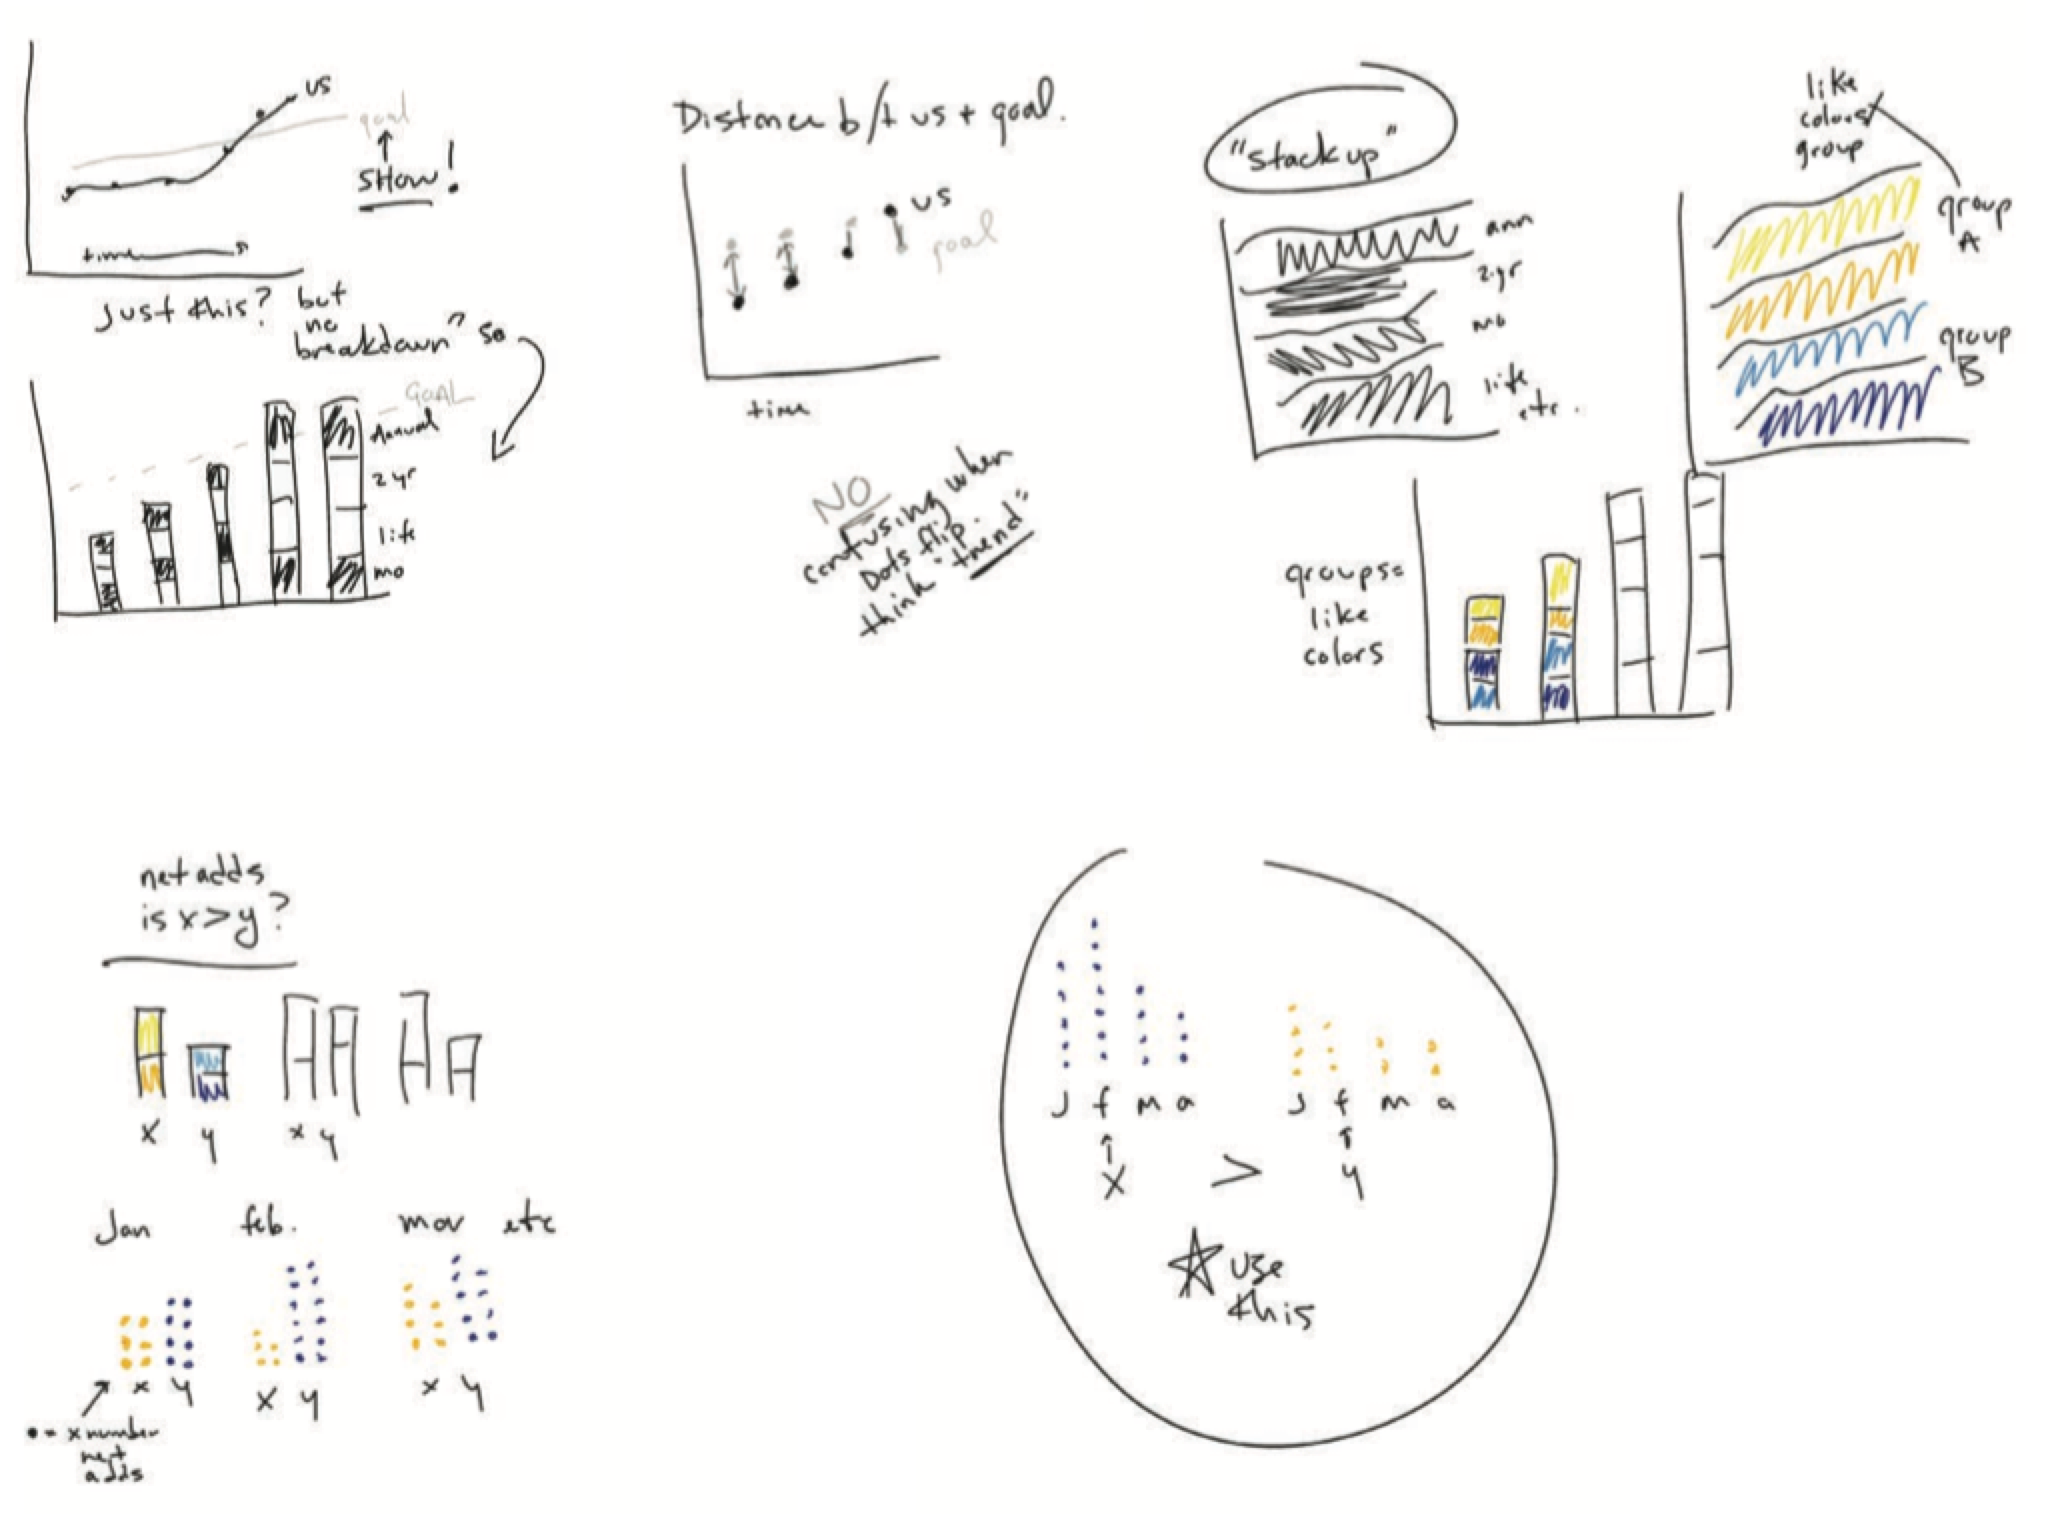 us
goal
SHOW!
time
Just this? but
no
breakdown" so
GOAL
Annual
2 yr
life
mo
Distance b/t us + goal.
us
goal
time
NO
confusing when
Dots flip.
think "trend"
"stack up"
ann
2 yr
mo
life
etc.
like
colors
group
group
A
group
B
groups=
like
colors
net adds
is x>y?
x y
x y
Jan feb. mar etc
x y
x y
x y
• = x number
net
adds
J f m a
J f m a
x > y
use
this